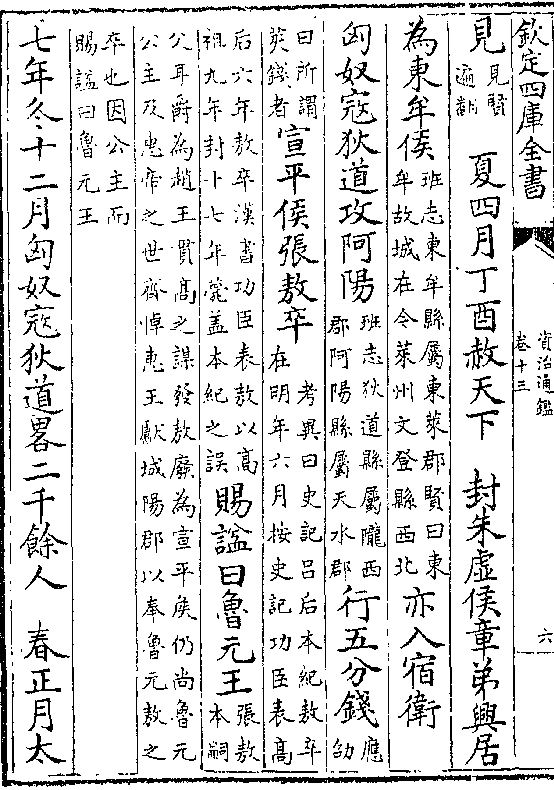 欽定四庫全書 資治通鑑 卷十三 六
見見賢遍翻 夏四月丁酉赦天下 封朱虛侯章弟興居
為東牟侯班志東牟縣屬東萊郡賢曰東牟故城在令萊州文登縣西北亦入宿衛
匈奴寇狄道攻阿陽班志狄道縣屬隴西郡阿陽縣屬天水郡行五分錢應劭
曰所謂莢錢者宣平侯張敖卒考異曰史記呂后本紀敖卒在明年六月按史記功臣表高
后六年敖卒漢書功臣表敖以高祖九年封十七年薨蓋本紀之誤賜諡曰魯元王張敖本嗣
公耳爵為趙王貫高之謀發敖廢為宣平侯仍尚魯元公主及惠帝之世齊悼惠王獻城陽郡以奉魯元敖之
卒也因公主而賜諡曰魯元王
七年冬十二月匈奴寇狄道畧二千餘人 春正月太